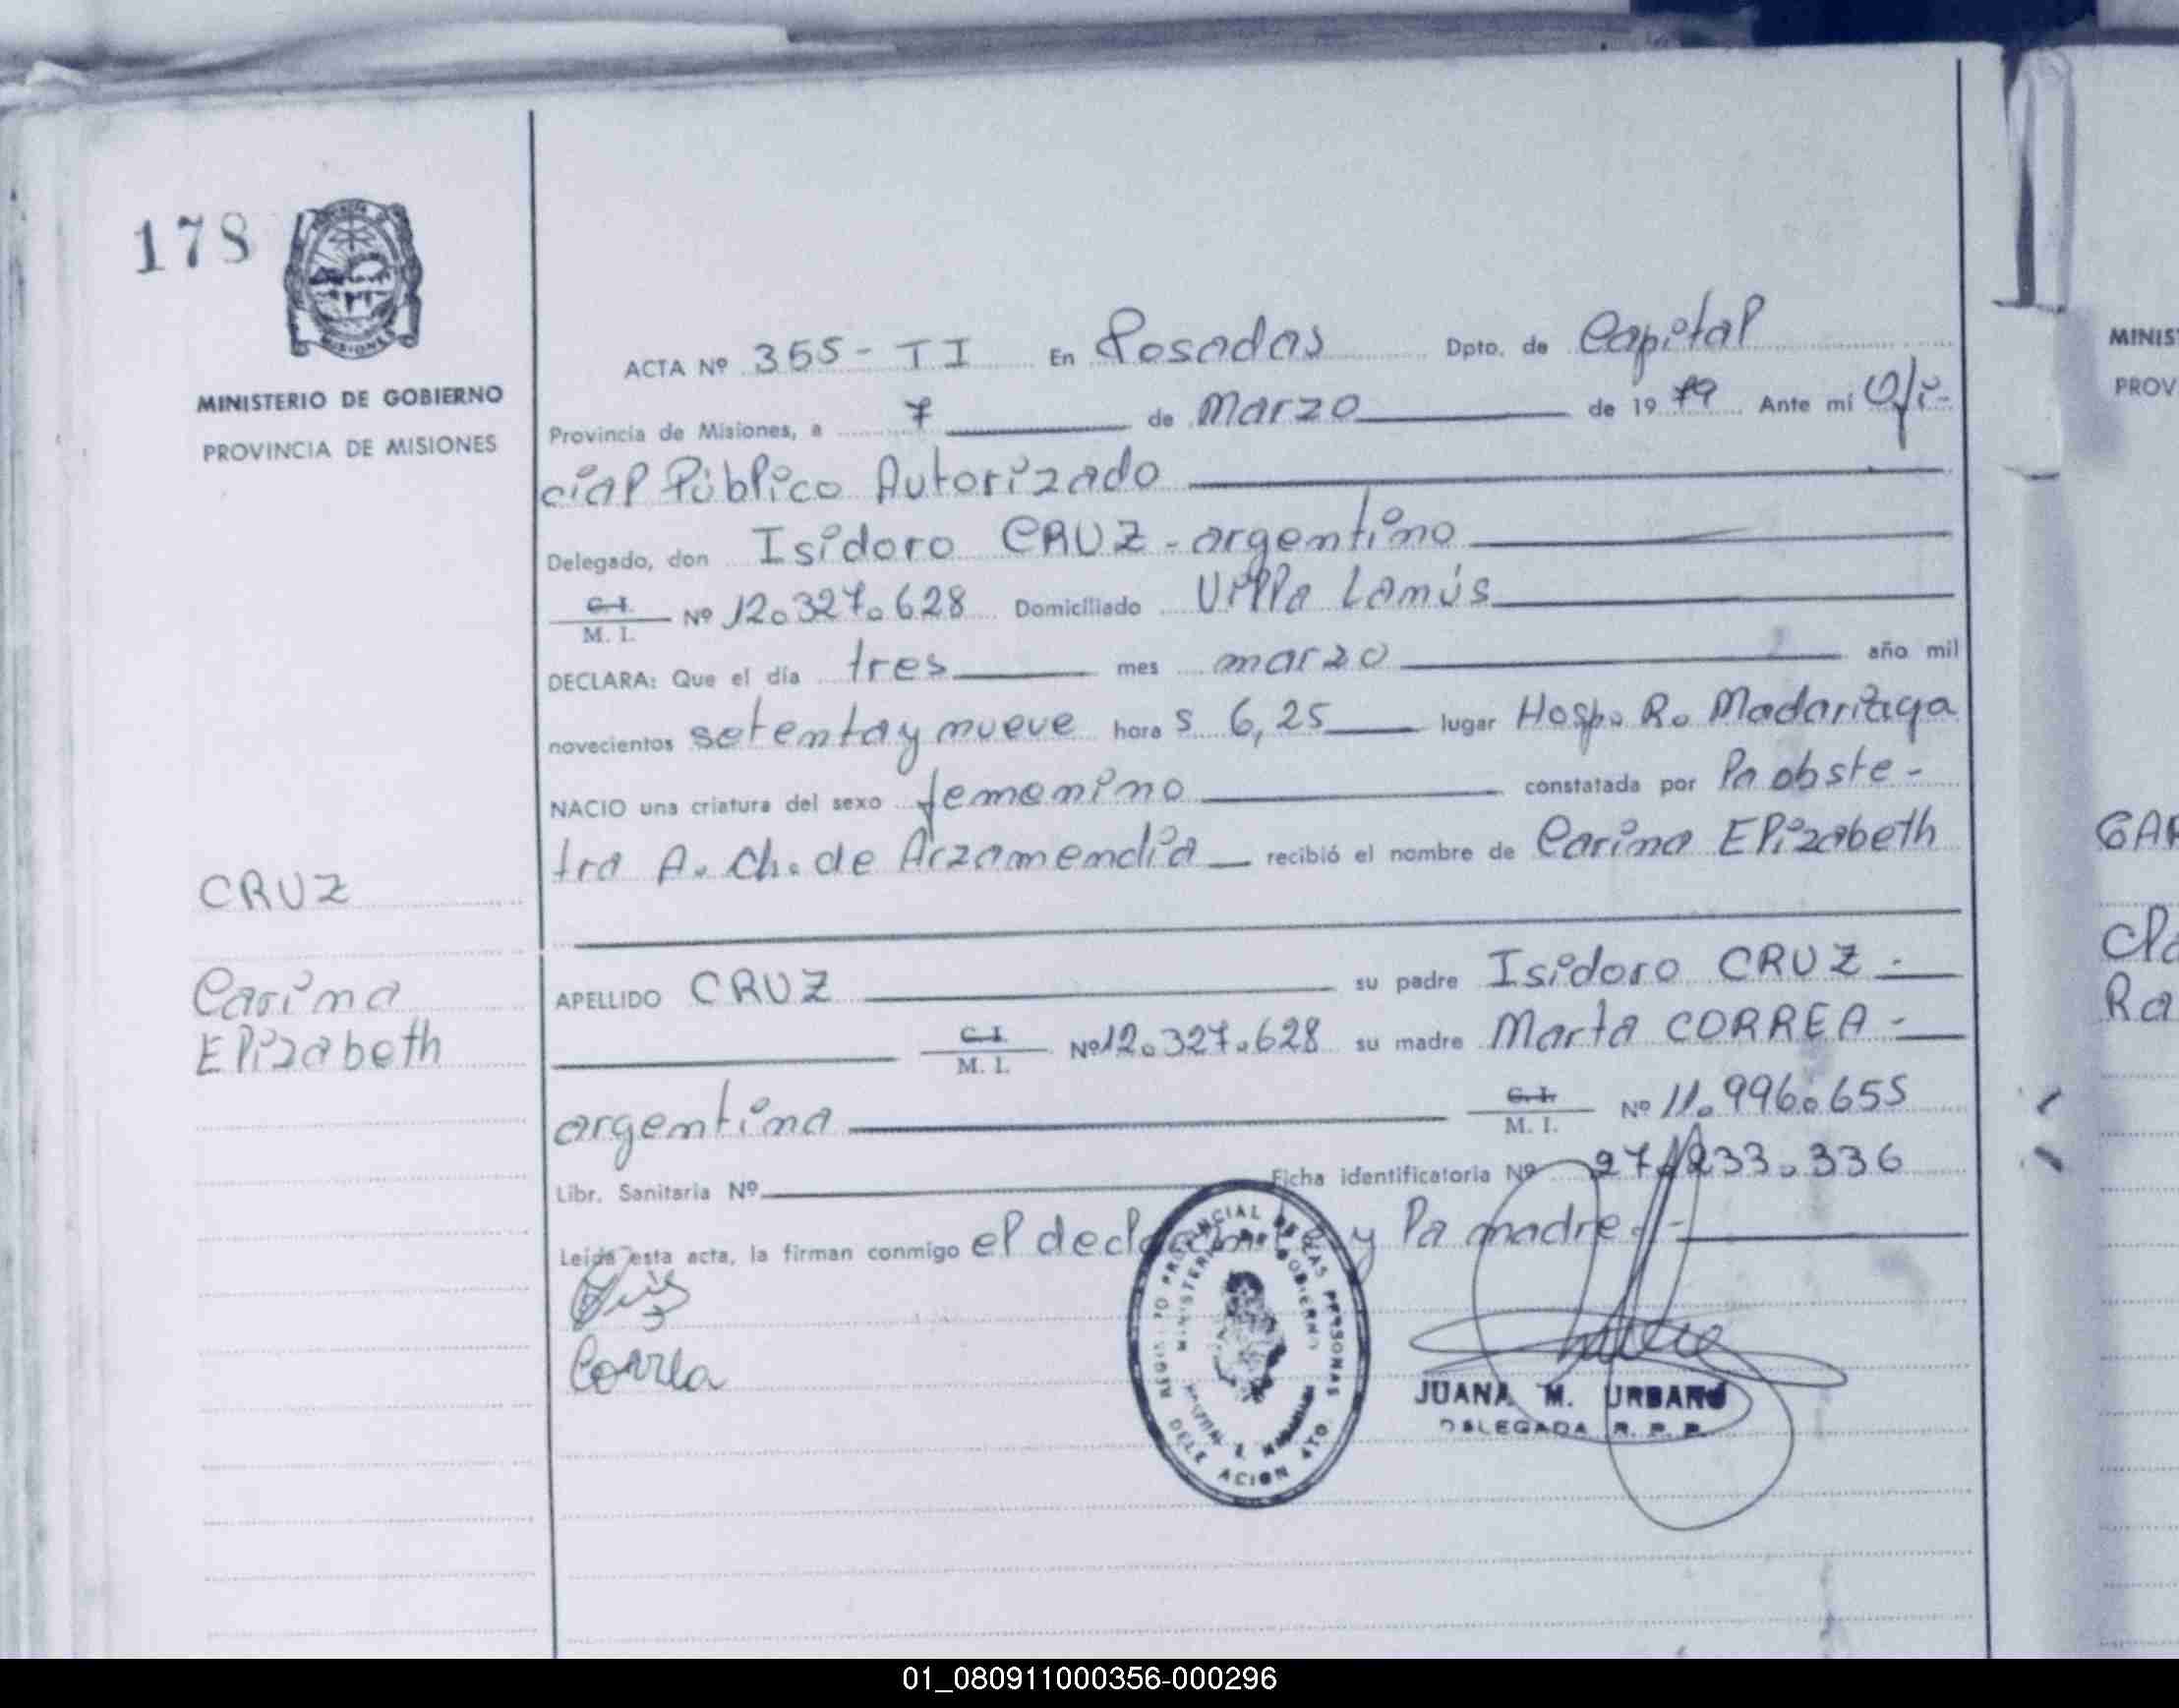 178
MISIONES
MINISTERIO DE GOBIERNO
PROVINCIA DE MISIONES
CRUZ
Carina
Elizabeth
ACTA Nº 355 - TI En Posadas Dpto. de Capital
Provincia de Misiones, a 7 de Marzo de 1979 Ante mí Ofi-
cial Público Autorizado
Delegado, don Isidoro CRUZ - argentino
C.I. M. I. Nº 12.327.628 Domiciliado Villa Lanús
DECLARA: Que el día tres mes marzo año mil
novecientos setenta y nueve hora s 6,25 lugar Hosp. R. Madariaga
NACIO una criatura del sexo femenino constatada por la obste-
tra A. Ch. de Arzamendia recibió el nombre de Carina Elizabeth
APELLIDO CRUZ su padre Isidoro CRUZ -
C.I. M. I. Nº 12.327.628 su madre Marta CORREA -
argentina C.I. M. I. Nº 11.996.655
Libr. Sanitaria Nº Ficha identificatoria Nº 27.233.336
Leída esta acta, la firman conmigo el declarante y la madre.-
Correa
REGISTRO PROVINCIAL DE LAS PERSONAS
MINISTERIO DE GOBIERNO
DELEGACION 4TO.
JUANA M. URBANO
DELEGADA R. P. P.
MINIS
PROV
GAR
Cla
Ra
01_080911000356-000296